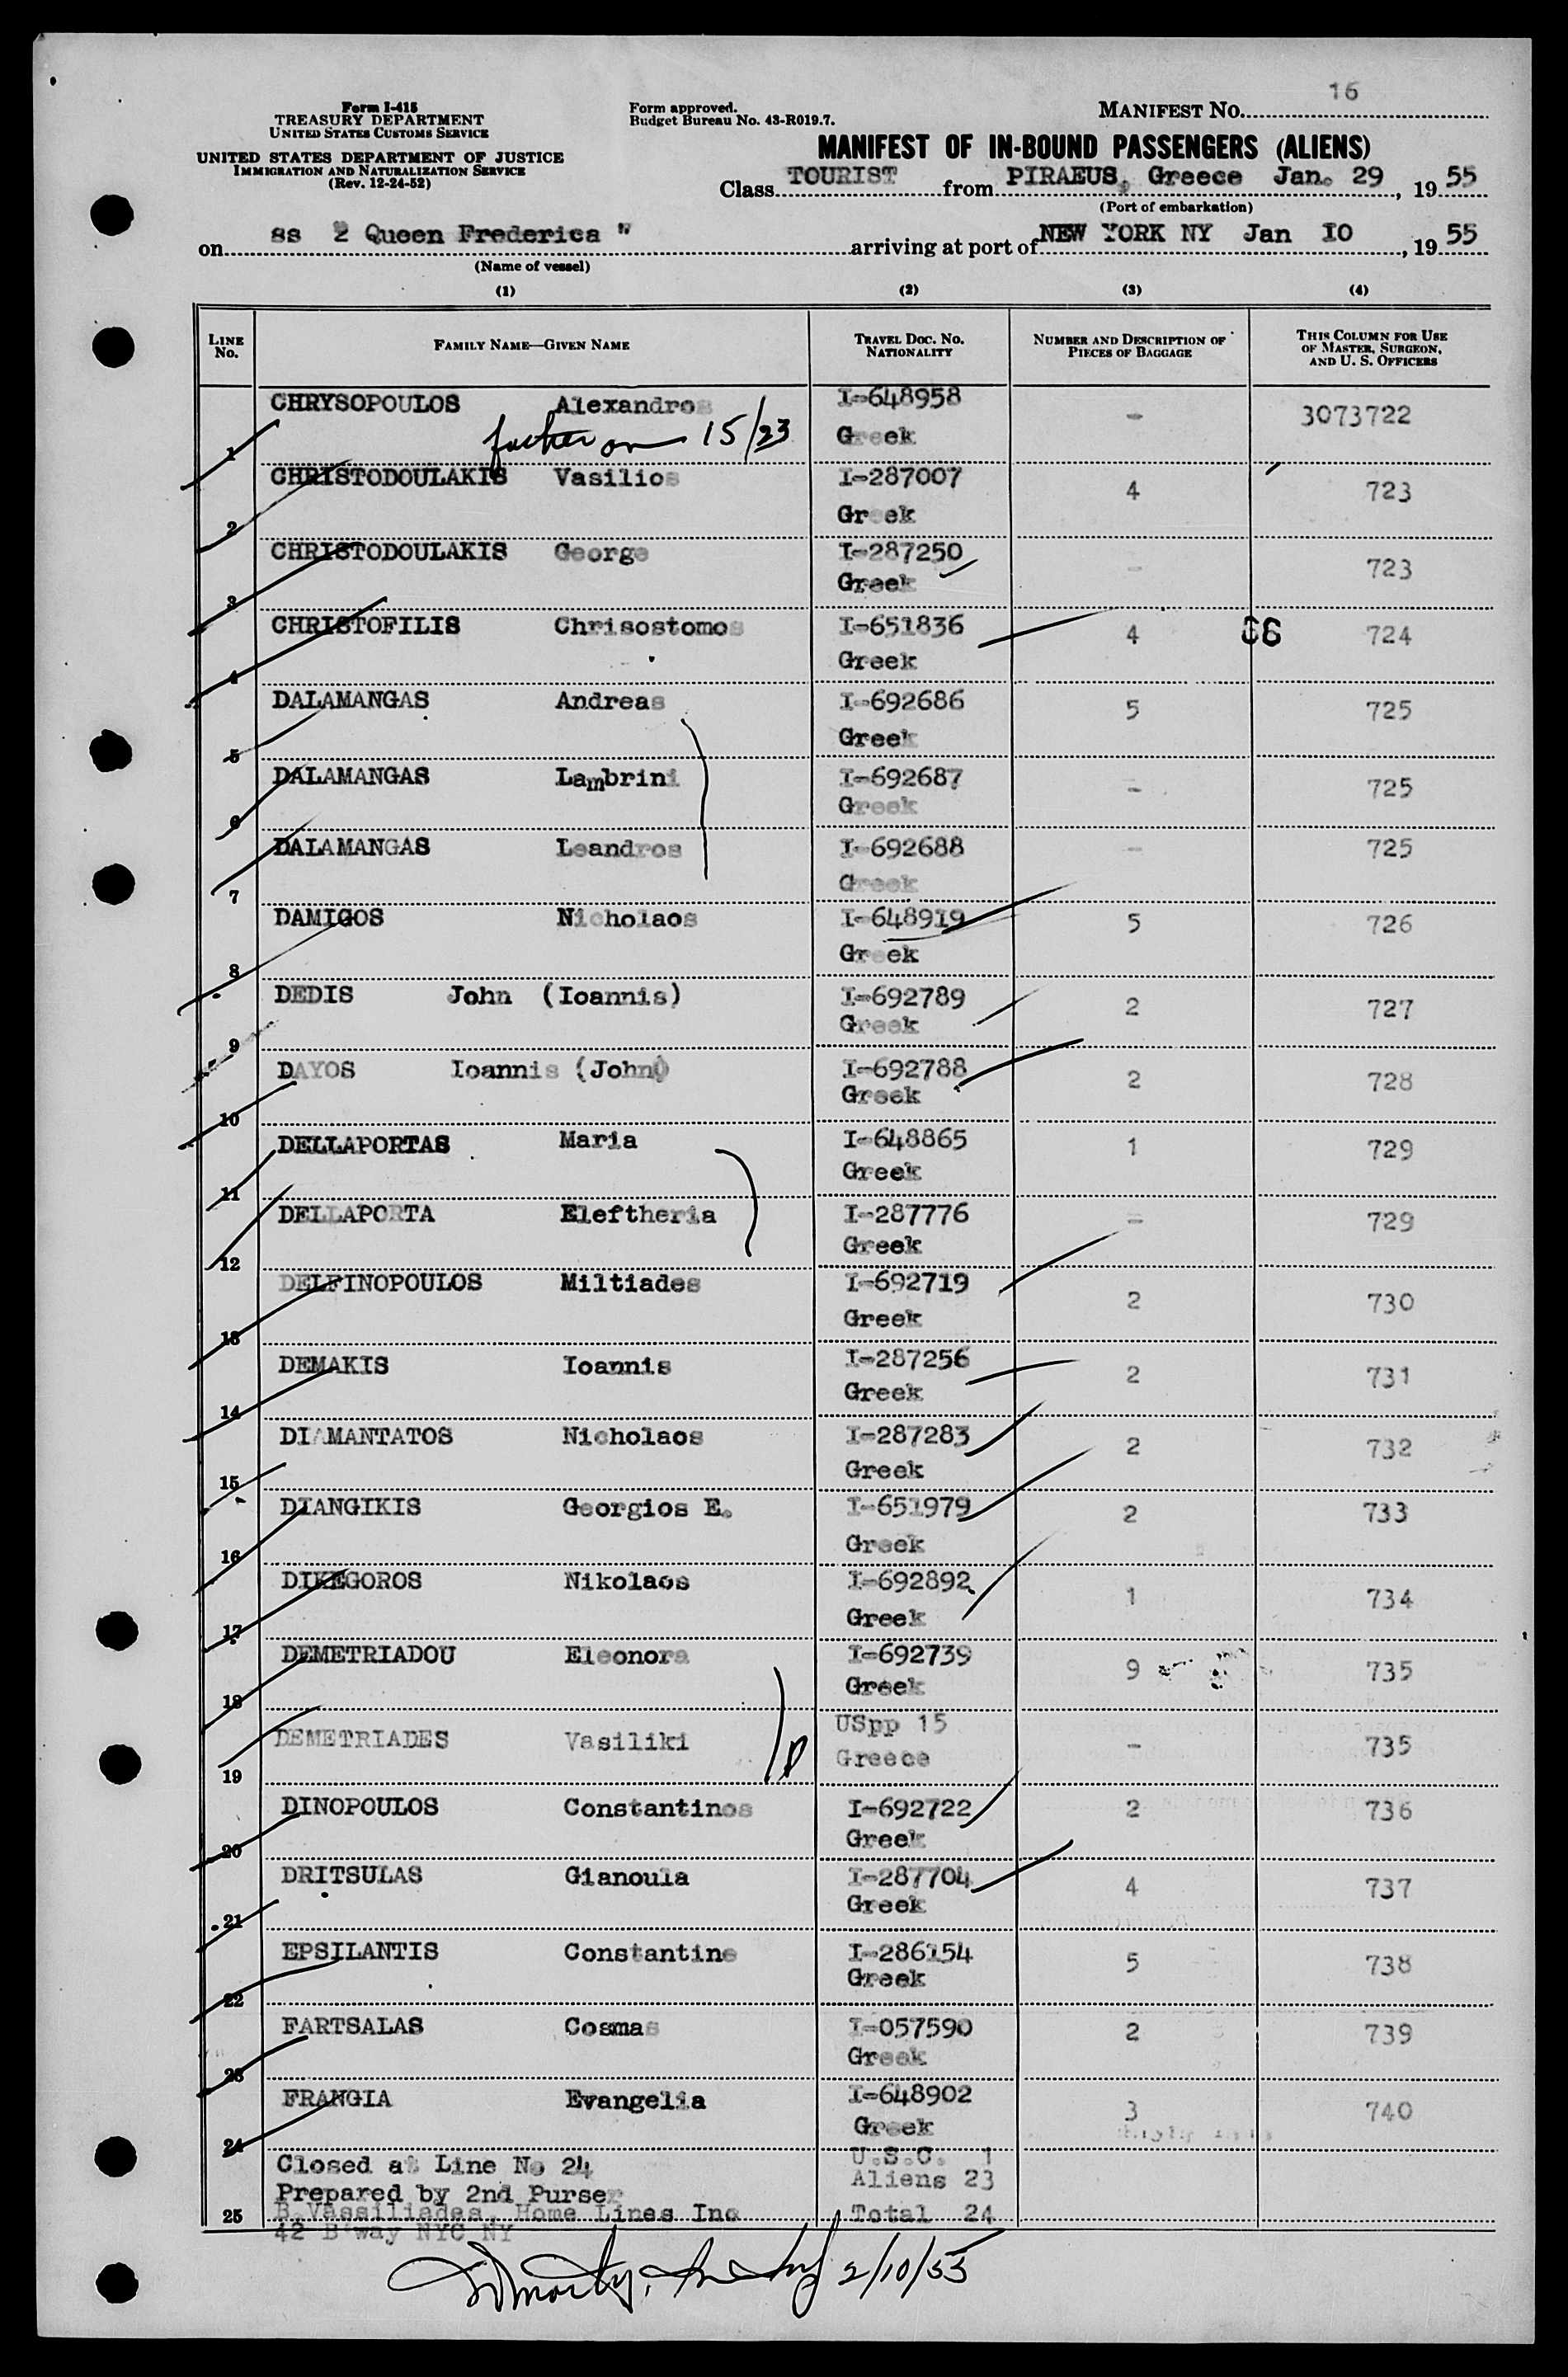 16
Form I-415
TREASURY DEPARTMENT
UNITED STATES CUSTOMS SERVICE
UNITED STATES DEPARTMENT OF JUSTICE
IMMIGRATION AND NATURALIZATION SERVICE
(Rev. 12-24-52)
Form approved.
Budget Bureau No. 43-R019.7.
MANIFEST No.
MANIFEST OF IN-BOUND PASSENGERS (ALIENS)
Class TOURIST from PIRAEUS, Greece Jan. 29, 19 55
(Port of embarkation)
on ss 2 Queen Frederica " arriving at port of NEW YORK NY Jan 10, 19 55
(Name of vessel)
(1) (2) (3) (4)
LINE No. FAMILY NAME—GIVEN NAME TRAVEL DOC. NO. NATIONALITY NUMBER AND DESCRIPTION OF PIECES OF BAGGAGE THIS COLUMN FOR USE OF MASTER, SURGEON, AND U. S. OFFICERS
1 CHRYSOPOULOS Alexandros I-648958 - 3073722
father on 15/23 Greek
2 CHRISTODOULAKIS Vasilios I-287007 4 723
Greek
3 CHRISTODOULAKIS George I-287250 - 723
Greek
4 CHRISTOFILIS Chrisostomos I-651836 4 66 724
Greek
5 DALAMANGAS Andreas I-692686 5 725
Greek
6 DALAMANGAS Lambrini I-692687 - 725
Greek
7 DALAMANGAS Leandros I-692688 - 725
Greek
8 DAMIGOS Nicholaos I-648919 5 726
Greek
9 DEDIS John (Ioannis) I-692789 2 727
Greek
10 DAYOS Ioannis (John) I-692788 2 728
Greek
11 DELLAPORTAS Maria I-648865 1 729
Greek
12 DELLAPORTA Eleftheria I-287776 - 729
Greek
13 DELFINOPOULOS Miltiades I-692719 2 730
Greek
14 DEMAKIS Ioannis I-287256 2 731
Greek
15 DIAMANTATOS Nicholaos I-287283 2 732
Greek
16 DIANGIKIS Georgios E. I-651979 2 733
Greek
17 DIKEGOROS Nikolaos I-692892 1 734
Greek
18 DEMETRIADOU Eleonora I-692739 9 735
Greek
19 DEMETRIADES Vasiliki USpp 15 - 735
Greece
20 DINOPOULOS Constantinos I-692722 2 736
Greek
21 DRITSULAS Gianoula I-287704 4 737
Greek
22 EPSILANTIS Constantine I-286154 5 738
Greek
23 FARTSALAS Cosmas I-057590 2 739
Greek
24 FRANGIA Evangelia I-648902 3 740
Greek
Closed at Line No 24 U.S.C. 1
Prepared by 2nd Purser Aliens 23
25 B.Vassiliades, Home Lines Inc Total 24
42 B'way NYC NY
2/10/55